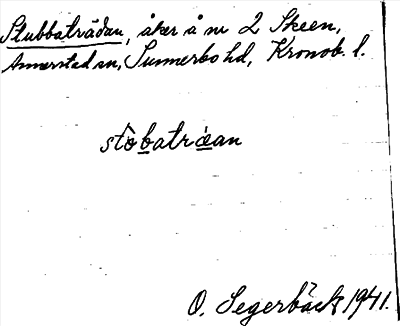 Stubbaträdan, åker å nr 2 Skeen,
Annerstad sn, Sunnerbo hd, Kronob. l.
stòbatræ̀an
O. Segerbäck 1941.